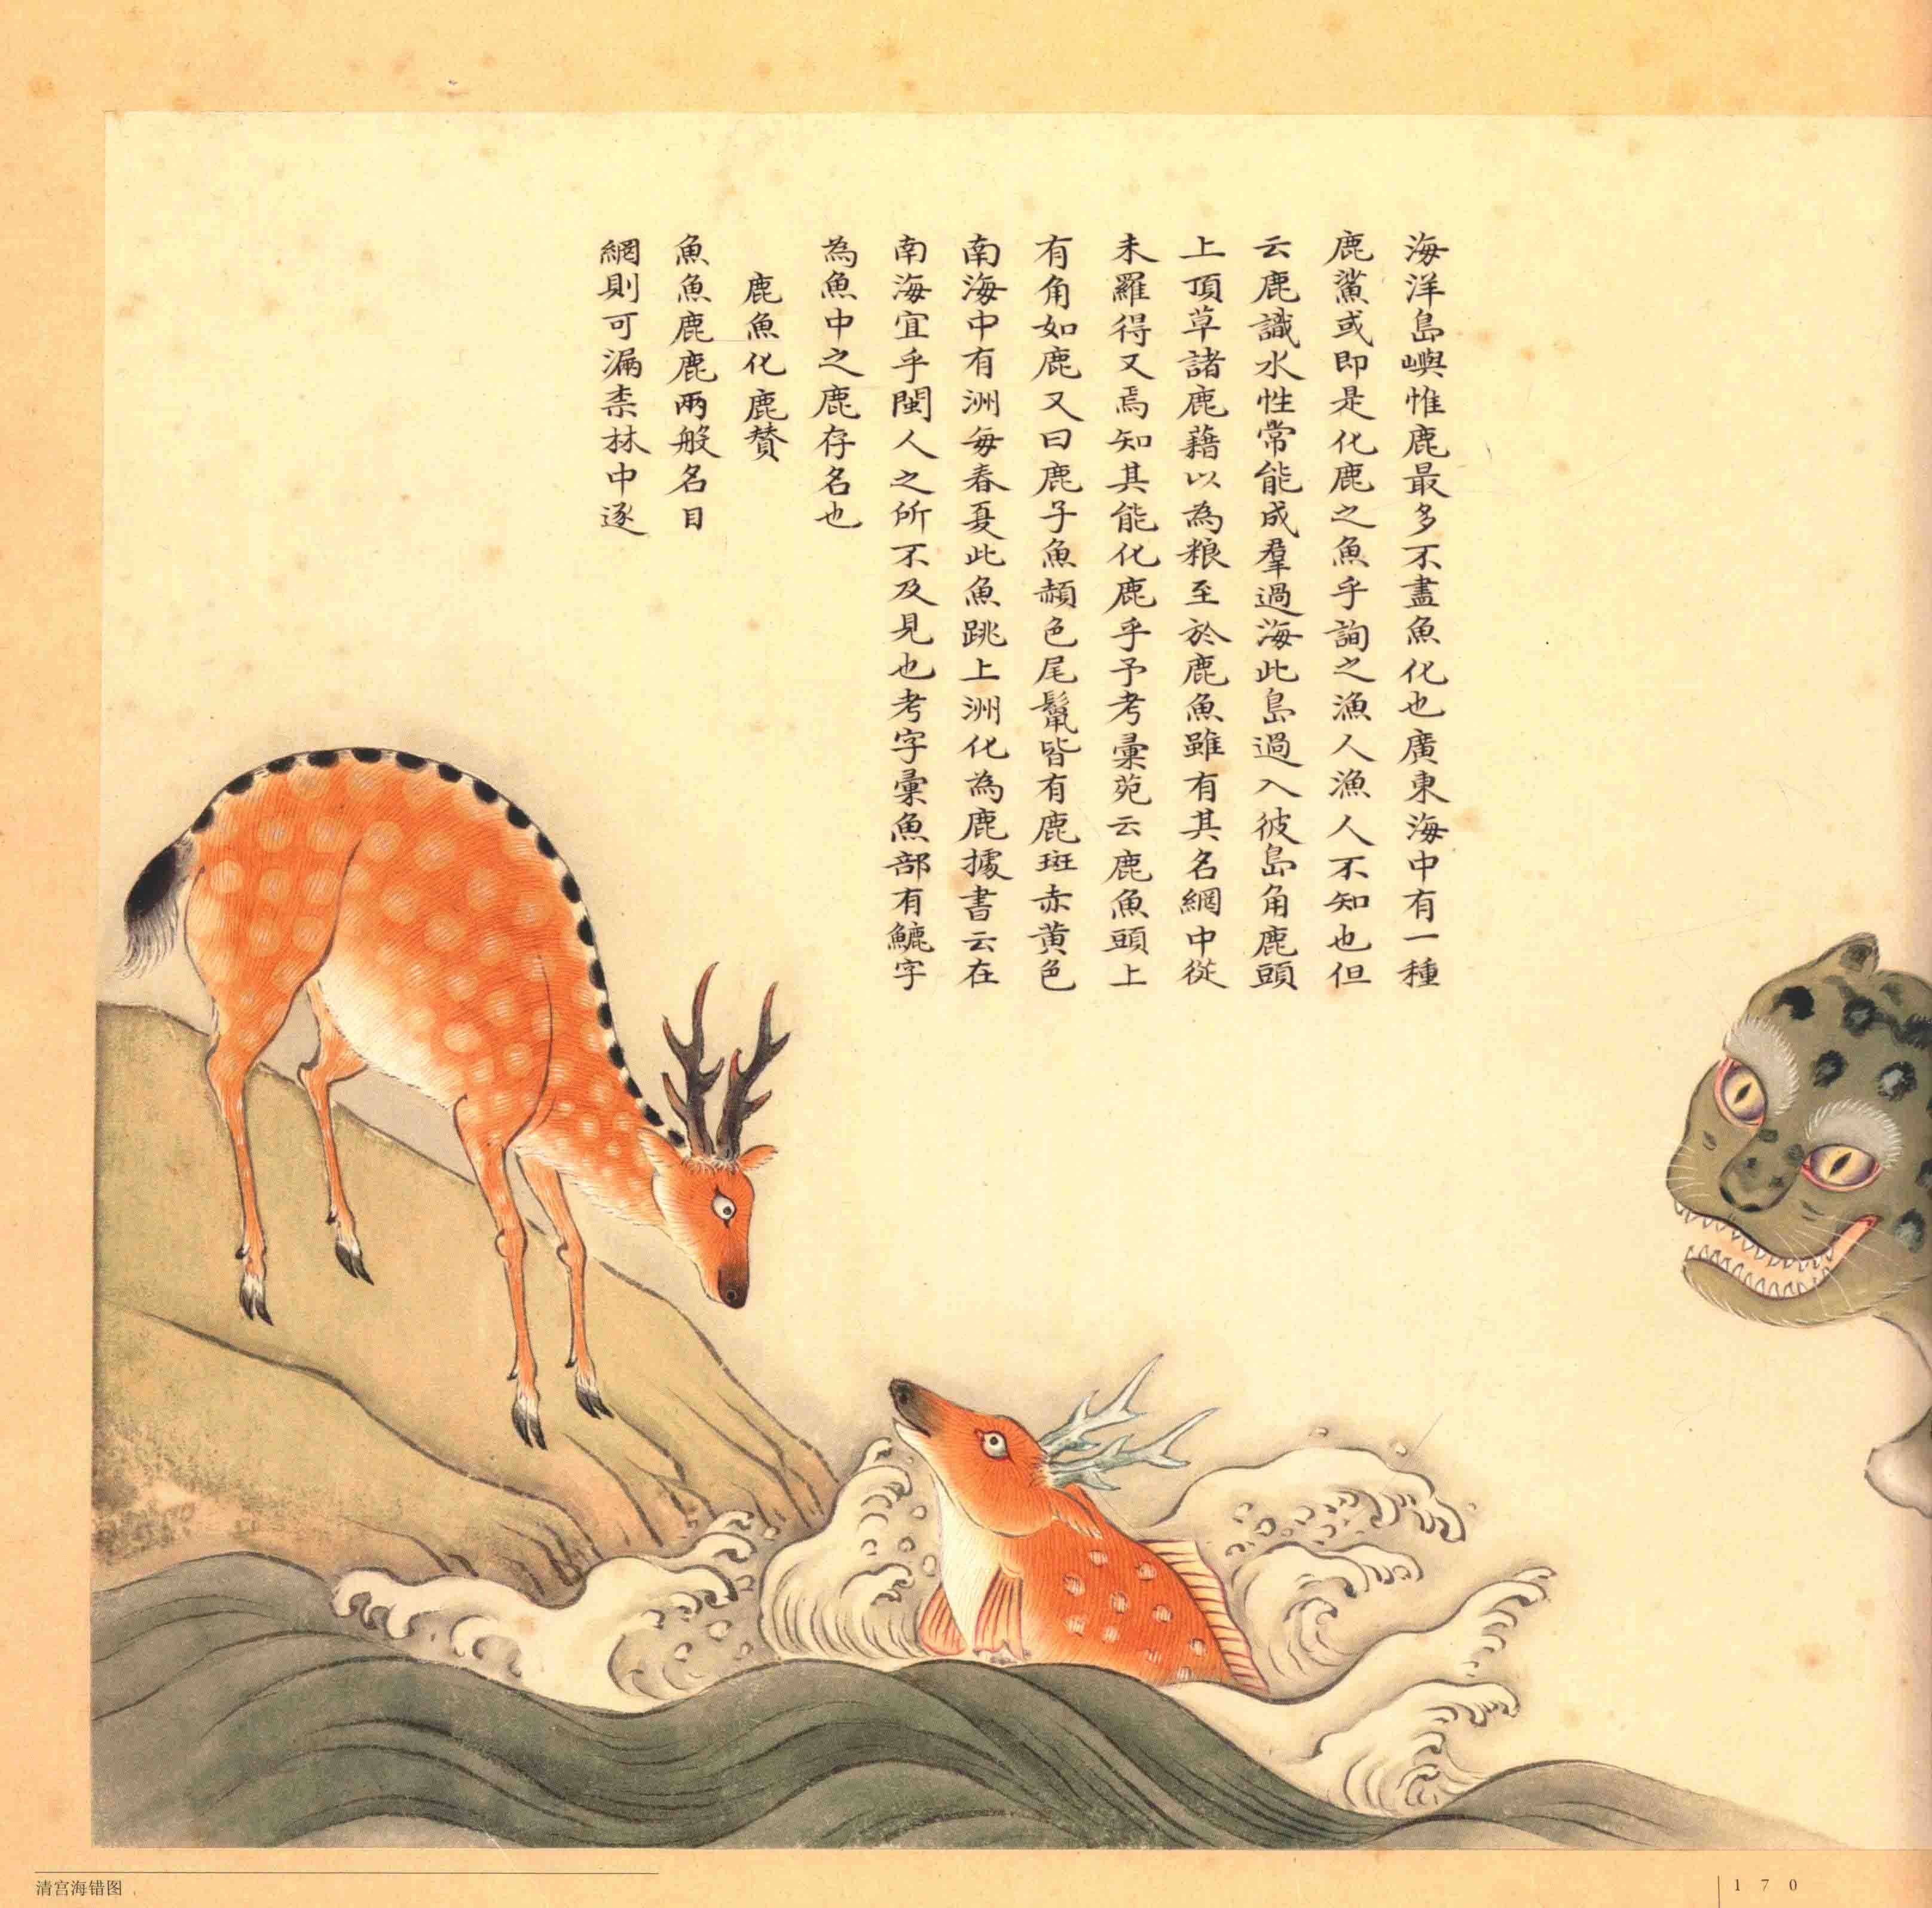 海洋島嶼惟鹿最多不盡魚化也廣東海中有一種
鹿鯊或即是化鹿之魚乎詢之漁人漁人不知也但
云鹿識水性常能成羣過海此島過入彼島角鹿頭
上頂草諸鹿藉以為粮至於鹿魚雖有其名網中從
未羅得又焉知其能化鹿乎予考彙苑云鹿魚頭上
有角如鹿又曰鹿子魚頳色尾鬣皆有鹿斑赤黃色
南海中有洲每春夏此魚跳上洲化為鹿據書云在
南海宜乎閩人之所不及見也考字彙魚部有䱚字
為魚中之鹿存名也
鹿魚化鹿贊
魚魚鹿鹿兩般名目
網則可漏柰林中逐
清宫海错图
170